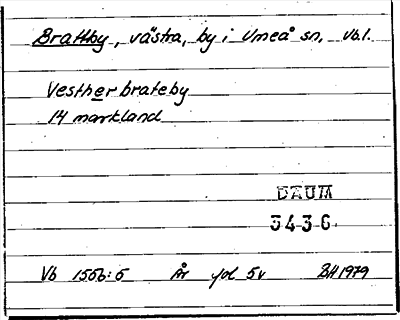 Brattby, västra, by i Umeå sn, Vb.l.
Vestherbrateby
14 markland
DAUM
3436
Vb 1556:5 År jol 5v BH 1979